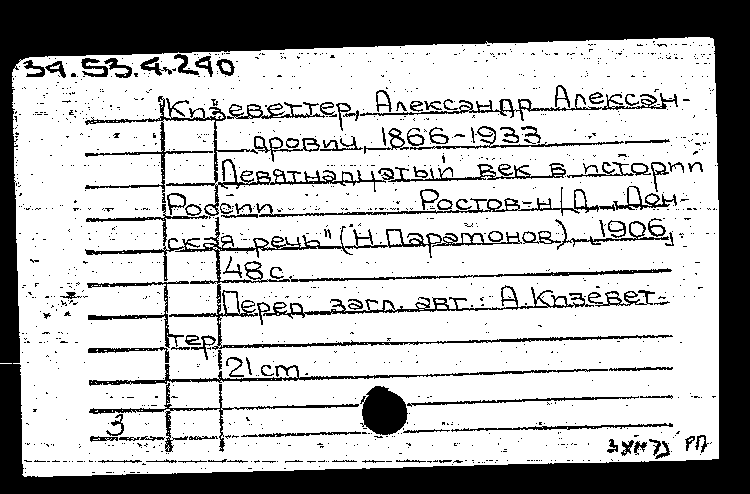 34.53.4.240
Кизеветтер, Александр Алексан-
дрович, 1866-1933
Девятнадцатый век в истории
России. Ростов-н/Д., „Дон-
ская речь" (Н.Парамонов), 1906.
48 с.
Перед загл. авт.: А.Кизевет-
тер
21 cm.
3
РП